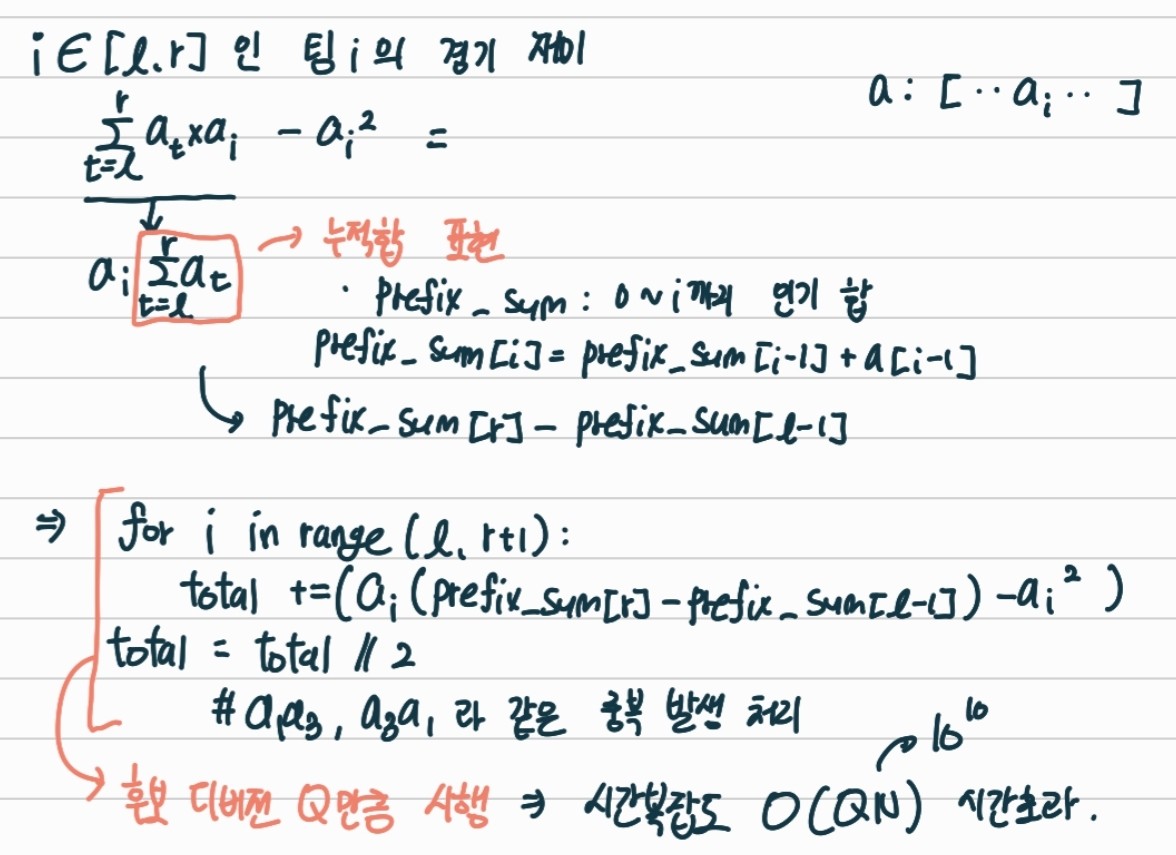 i ∈ [l, r] 인 팀 i의 경기 재미
a : [ ·· aᵢ ·· ]
r
Σ aₜ×aᵢ - aᵢ² =
t=l
r
aᵢ Σ aₜ → 누적합 표현
t=l
· prefix_sum : 0 ~ i까지 인기 합
prefix_sum[i] = prefix_sum[i-1] + a[i-1]
prefix_sum[r] - prefix_sum[l-1]
⇒ for i in range (l, r+1) :
total += (aᵢ (prefix_sum[r] - prefix_sum[l-1]) - aᵢ² )
total = total // 2
# a₁a₃, a₃a₁ 라 같은 중복 발생 처리
10¹⁰
후보 디비전 Q만큼 시행 ⇒ 시간복잡도 O(QN) 시간초과.